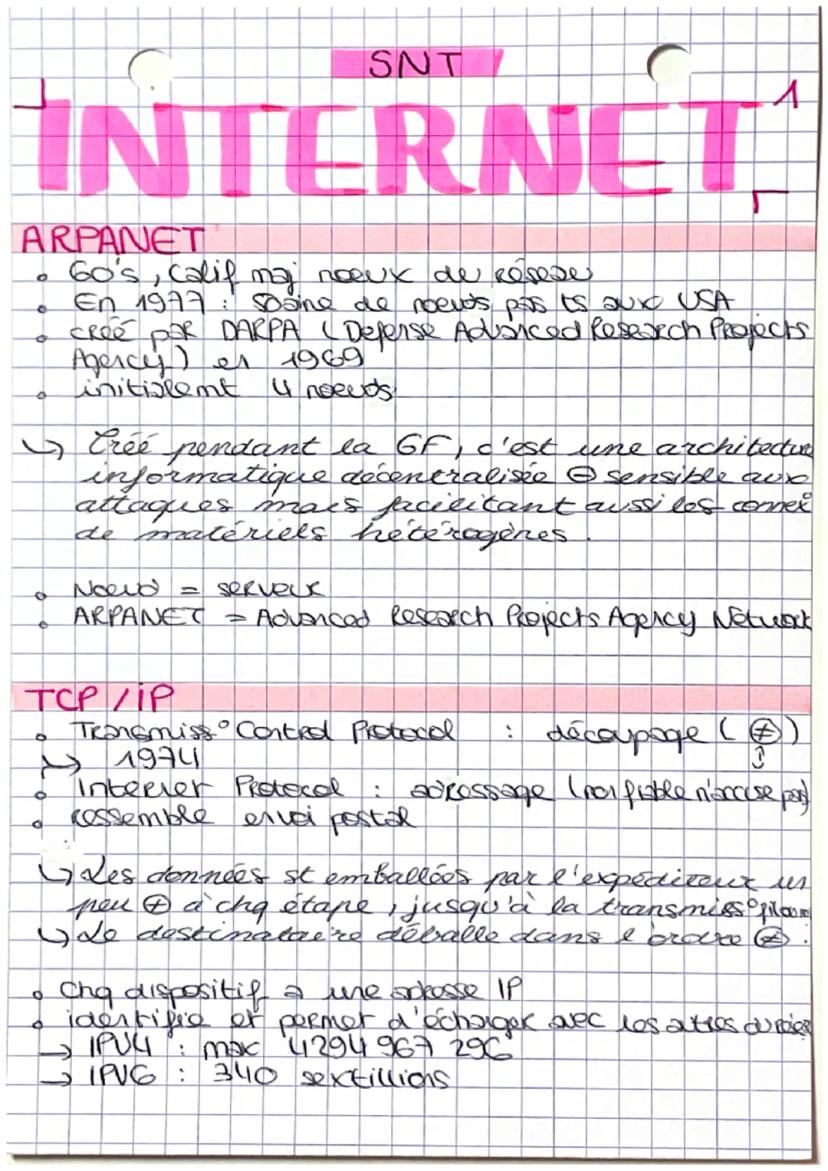 SNT
INTERNET
ARPANET
• 60's, Calif maj nœux de résesu
• En 1977 : 50aine de noeuds pas ts aux USA
• créé par DARPA (Defense Advanced Research Projects
Agency) en 1969
• initialemt 4 noeuds
↳ Créé pendant la GF, c'est une architecture
informatique décentralisée ⊖ sensible aux
attaques mais facilitant aussi les connex°
de matériels hétérogènes.
• Noeud = serveur
• ARPANET = Advanced Research Projects Agency Network
TCP / iP
• Transmiss° Control Protocol : découpage (≠)
↳ 1974
• Internet Protocol : adressage (non fiable n'accuse pas)
• ressemble envoi postal
↳ Les données st emballées par l'expéditeur un
peu ⊕ à chq étape, jusqu'à la transmiss°
↳ Le destinataire déballe dans l'ordre ≠.
• Chq dispositif a une adresse IP
• identifie et permet d'échanger avec les autres
→ IPV4 : max 4 294 967 296
→ IPV6 : 340 sextillions